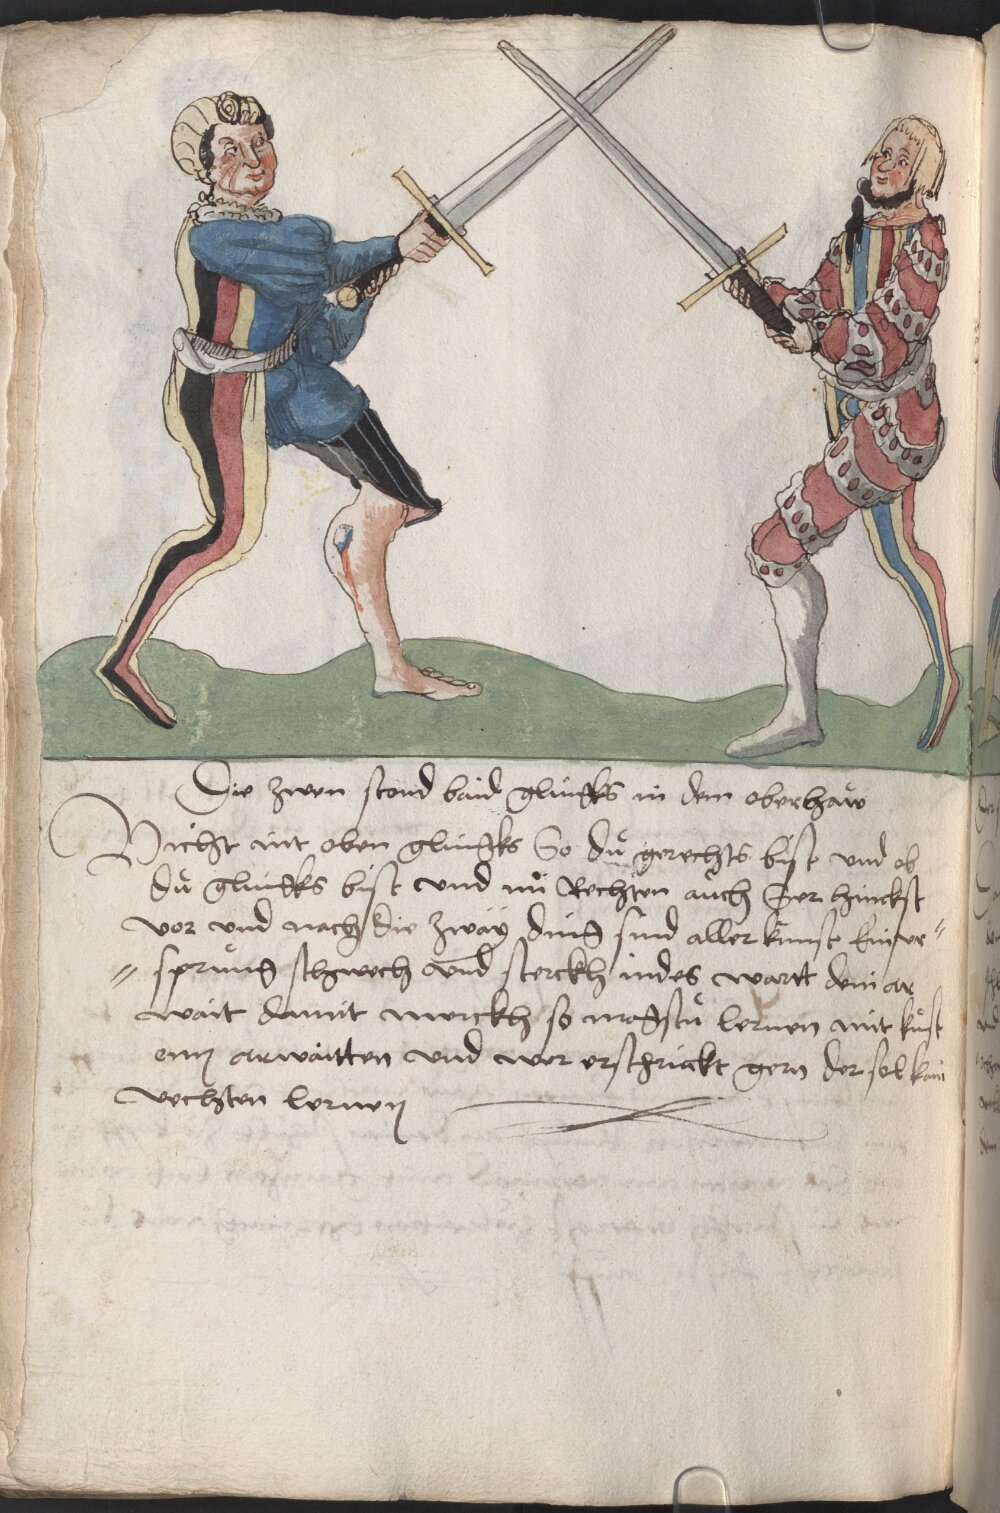 Die zwen stond baid glincks in dem oberhaw
Vicht nit oben glincks So du gerechts bist und ob
du glincks bist und im Rechten auch Ser hinckst
vor und nach die zway ding sind aller kunst Ein ur=
=sprung schwech und sterckh indes wartt dein ar
wait damit merckh so magstu lernen mit kunst
enn arwaitten und wer erschrickt gern der sol kain
vechten lernen